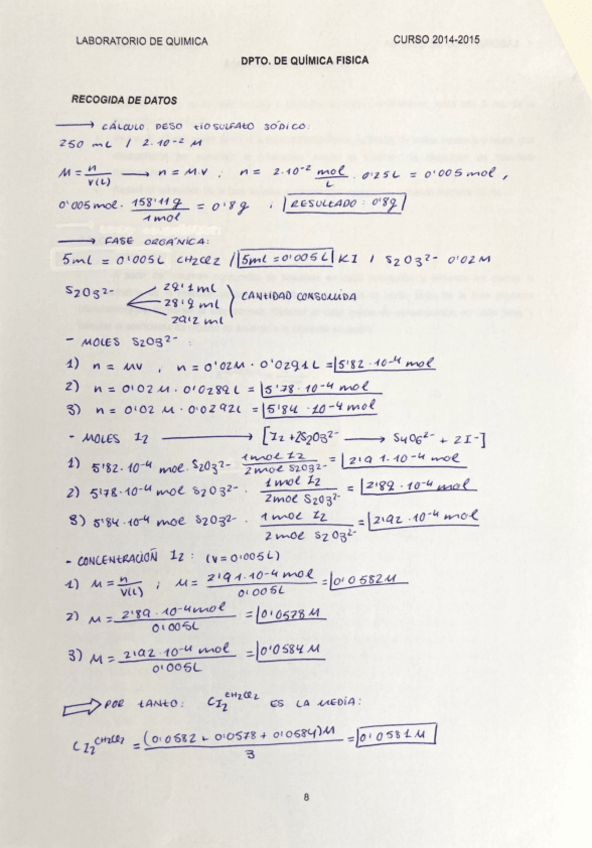 LABORATORIO DE QUIMICA CURSO 2014-2015
DPTO. DE QUÍMICA FISICA
RECOGIDA DE DATOS
→ CÁLCULO PESO TIOSULFATO SÓDICO:
250 mL / 2·10⁻² M
M = n/V(L) → n = M·V ; n = 2·10⁻² mol/L · 0'25L = 0'005 mol,
0'005 mol · 158'11g/1mol = 0'8g ; RESULTADO: 0'8g
→ FASE ORGÁNICA:
5ml = 0'005L CH2Cl2 / 5ml = 0'005L KI / S2O3²⁻ 0'02M
S2O3²⁻ 29'1 ml
28'9 ml } CANTIDAD CONSUMIDA
29'2 ml
- MOLES S2O3²⁻:
1) n = MV , n = 0'02M · 0'0291L = 5'82·10⁻⁴ mol
2) n = 0'02 M · 0'0289L = 5'78·10⁻⁴ mol
3) n = 0'02 M · 0'0292L = 5'84·10⁻⁴ mol
- MOLES I2 → [I2 + 2S2O3²⁻ → S4O6²⁻ + 2I⁻]
1) 5'82·10⁻⁴ mol S2O3²⁻ · 1mol I2/2mol S2O3²⁻ = 2'91·10⁻⁴ mol
2) 5'78·10⁻⁴ mol S2O3²⁻ · 1mol I2/2mol S2O3²⁻ = 2'89·10⁻⁴ mol
3) 5'84·10⁻⁴ mol S2O3²⁻ · 1mol I2/2mol S2O3²⁻ = 2'92·10⁻⁴ mol
- CONCENTRACIÓN I2: (V = 0'005L)
1) M = n/V(L) ; M = 2'91·10⁻⁴ mol/0'005L = 0'0582M
2) M = 2'89·10⁻⁴ mol/0'005L = 0'0578M
3) M = 2'92·10⁻⁴ mol/0'005L = 0'0584M
⇒ POR TANTO: C I2 CH2Cl2 ES LA MEDIA:
C I2 CH2Cl2 = (0'0582 + 0'0578 + 0'0584)M/3 = 0'0581M
8